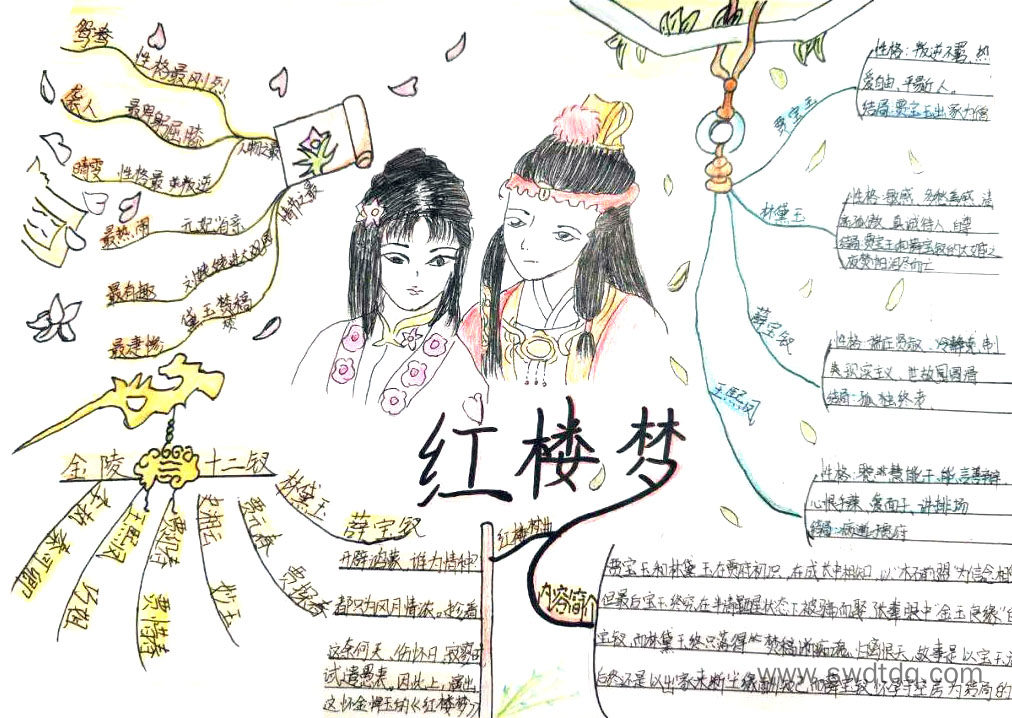 鸳鸯
性格最刚烈
袭人
最卑躬屈膝
人物之最
晴雯
性格最叛逆
情节之最
最热闹
元妃省亲
最有趣
刘姥姥进大观园
最凄惨
黛玉焚稿
金陵十二钗
林黛玉
薛宝钗
贾元春
贾探春
史湘云
妙玉
贾迎春
贾惜春
王熙凤
巧姐
李纨
秦可卿
红楼梦
红楼梦曲
开辟鸿蒙，谁为情种？
都只为风月情浓。趁着
这奈何天，伤怀日，寂寥时
试遣愚衷。因此上，演出
这怀金悼玉的《红楼梦》
内容简介
贾宝玉和林黛玉在贾府初识，在成长中相知，以"木石前盟"为信念相
但最后宝玉终究在半清醒状态下被骗而娶
眼中"金玉良缘"
宝钗，而林黛玉终只落得
焚稿断痴情，归离恨天，故事是以宝玉
后终还是以出家来断
贾宝玉
性格：叛逆不羁，热
爱自由、平易近人。
结局：贾宝玉出家为僧
林黛玉
性格：敏感、多愁善感、洁
真诚待人、自卑
结局：贾宝玉和薛宝钗的大婚之
夜焚稿泪尽而亡
薛宝钗
性格：端庄贤淑、冷静克制
美、现实主义、世故圆滑
结局：孤独终老
王熙凤
性格：聪慧能干、能言善辩
心狠手辣、爱面子、讲排场
结局：病逝于贾府
www.swtdtdq.com